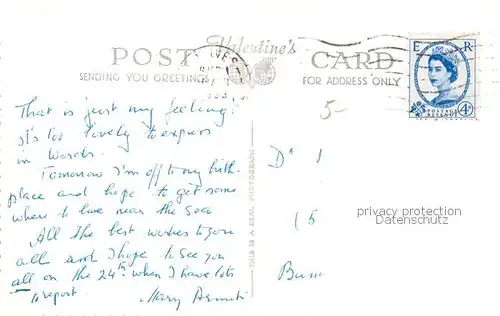 POST Valentine's CARD
SENDING YOU GREETINGS
FOR ADDRESS ONLY
E R
POSTAGE
REVENUE
4D
5-
That is just my feeling!
it's too lovely to express
in words.
Tomorrow I'm off to my birth-
place and hope to get some
where to live near the sea
All the best wishes to you
all and I hope to see you
all on the 24th when I have lots
to report.
Mary
THIS IS A REAL PHOTOGRAPH
Dr
(5
privacy protection
Datenschutz